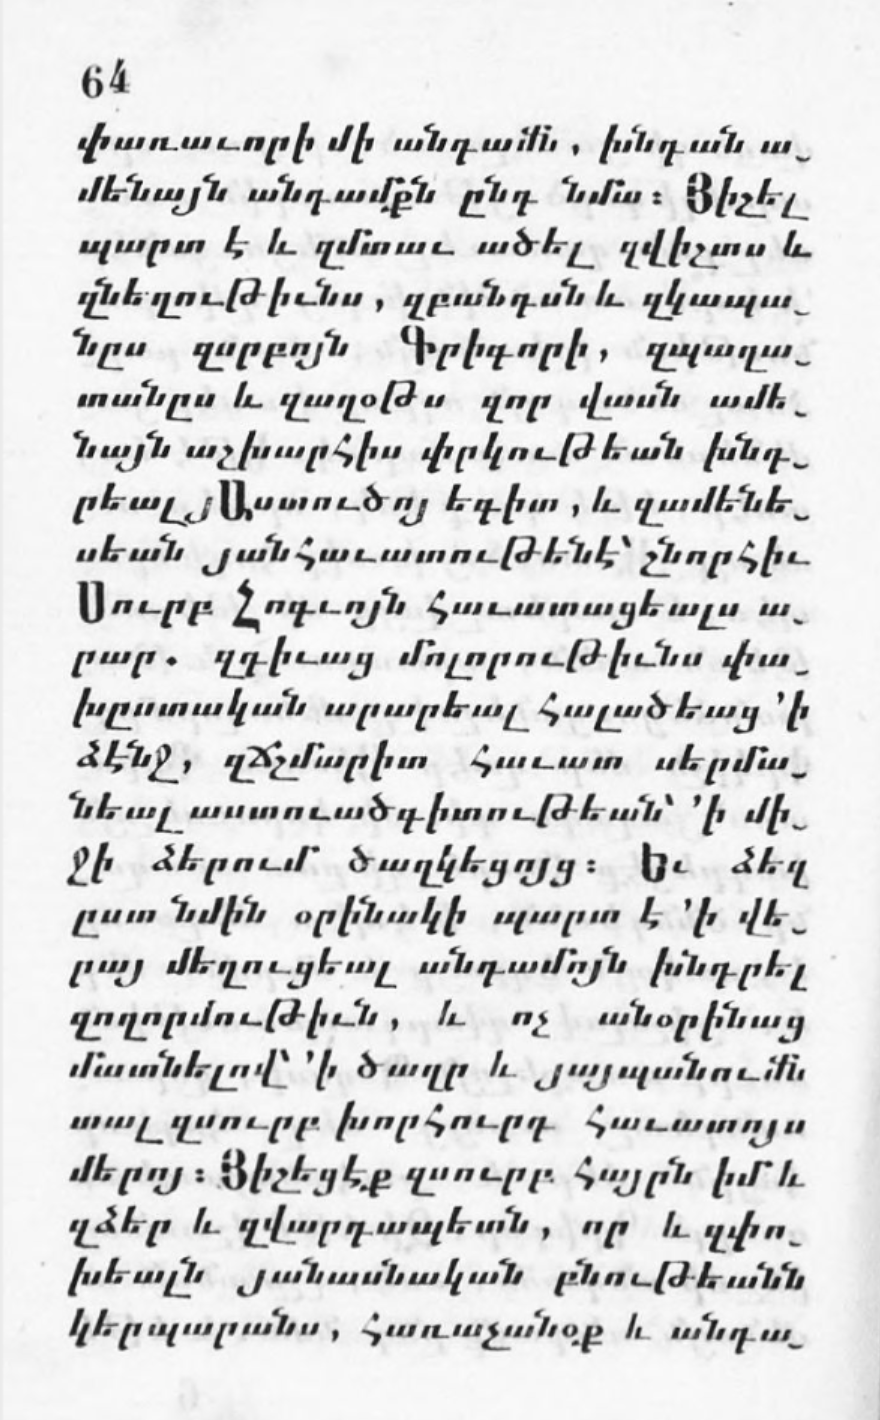 64
փառաւորի մի անդամն, խնդան ա֊
մենայն անդամքն ընդ նմա։ Յիշել
պարտ է և զմտաւ ածել զվիշտս և
զնեղութիւնս, զբանդսն և զկապա֊
նըս զսրբոյն Գրիգորի, զպաղա֊
տանըս և զաղօթս զոր վասն ամե֊
նայն աշխարհիս փրկութեան խնդ֊
րեալ յԱստուծոյ եգիտ, և զամենե֊
սեան յանհաւատութենէ՝ շնորհիւ
Սուրբ Հոգւոյն հաւատացեալս ա֊
րար. զդիւաց մոլորութիւնս փա֊
խըստական արարեալ հալածեաց ՚ի
ձէնջ, զճշմարիտ հաւատ սերմա֊
նեալ աստուածգիտութեան՝ ՚ի մի֊
ջի ձերում ծաղկեցոյց։ Եւ ձեզ
ըստ նմին օրինակի պարտ է ՚ի վե֊
րայ մեղուցեալ անդամոյն խնդրել
զողորմութիւն, և ոչ անօրինաց
մատնելով՝ ՚ի ծաղր և յայպանումն
տալ զսուրբ խորհուրդ հաւատոյս
մերոյ։ Յիշեցէք զսուրբ հայրն իմ և
զձեր և զվարդապեան, որ և զփո֊
խեալն յանասնական բնութեանն
կերպարանս, հառաչանօք և անդա֊